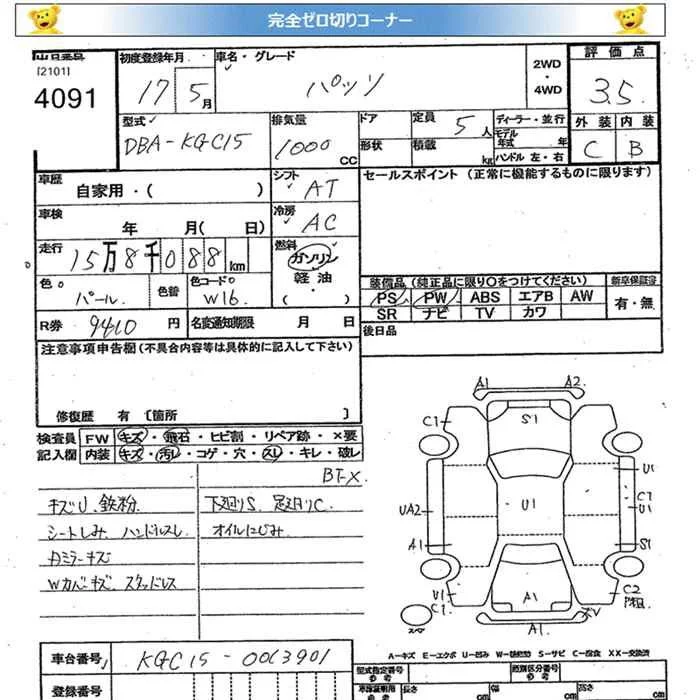 完全ゼロ切りコーナー
[2101]
4091
初度登録年月 17 5月
車名・グレード パッソ
2WD・4WD
評価点 3.5
外装 内装
C B
型式 DBA-KGC15
排気量 1000 CC
ドア
形状
定員 5人
積載 kg
ディーラー・並行
モデル年式 年
ハンドル 左・右
車歴 自家用・( )
シフト AT
セールスポイント (正常に機能するものに限ります)
車検 年 月( 日)
冷房 AC
走行 15万8千088km
燃料 ガソリン 軽油・( )
色 パール
色替
色コードNO W16
装備品 (純正品に限り○をつけてください)
新車保証書
PS PW ABS エアB AW
有・無
SR ナビ TV カワ
R券 9410円
名変通知期限 月 日
後日品
注意事項申告欄 (不具合内容等は具体的に記入して下さい)
修復歴 有 〔箇所 〕
検査員記入欄
FW キズ・飛石・ヒビ割・リペア跡・×要
内装 キズ・汚レ・コゲ・穴・スレ・キレ・破レ
BT-X
キズU 鉄粉
下廻りS 足廻りC
シートしみ ハンドルスレ
オイルにじみ
Wカバーキズ スタッドレス
A1 A2
C1 S1
U1
UA2 U1 C1
U1
A1 S1
U1
C1
A1
C2
XV
A1
スペア
A-キズ E-エクボ U-凹み W-補修跡 S-サビ C-腐食 XX-交換済
車台番号 KGC15-0013901
登録番号
型式指定番号
類別区分番号
長さ cm 幅 cm 高さ cm